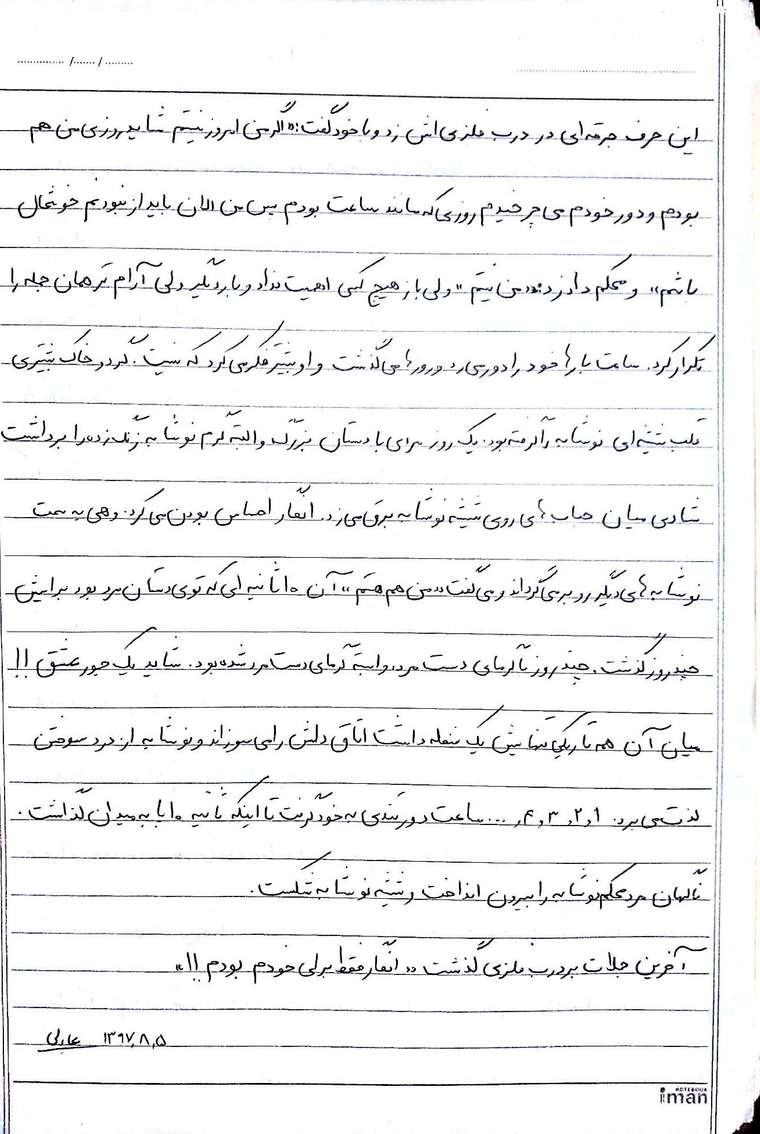 این حرف جرقه‌ای در درب فلزی اش زد و با خود گفت: «اگر من امروز نیستم شاید روزی من هم
بودم و دور خودم می چرخیدم روزی که مانند ساعت بودم پس من الان باید از نبودنم خوشحال
باشم» و محکم داد زد: «من نیستم» ولی باز هیچ کس اهمیت نداد و بار دیگر ولی آرام تر همان جمله را
تکرار کرد. ساعت بارها خود را دور می زد و روزها می گذشت و او بیشتر فکر می کرد که نیست. گرد و خاک بیشتری
قلب شیشه‌ای نوشابه را گرفته بود. یک روز مردی با دستان بزرگ و البته گرم نوشابه زنگ زده را برداشت
شادی میان حباب های روی شیشه نوشابه برق می زد. انگار احساس بودن می کرد. وهی به سمت
نوشابه های دیگر رو بر می گرداند و می گفت «من هم هستم» آن ۱۰ ثانیه ای که توی دستان مرد بود برایش
چند روز گذشت. چند روز با گرمای دست مرد، وابسته گرمای دست مرد شده بود. شاید یک جور عشق !!
میان آن همه تاریکی تنهایش یک شعله داشت اتاق دلش را می سوزاند و نوشابه از درد سوختن
لذت می برد. ۱، ۲، ۳، ۴, ... ساعت دور تندی به خود گرفت تا اینکه ثانیه ۱۰ پا به میدان گذاشت.
ناگهان مرد محکم نوشابه را بیرون انداخت و شیشه نوشابه شکست.
آخرین جملات بر درب فلزی گذشت «انگار فقط برای خودم بودم !!»
۱۳۹۷,۸,۵
iman
NOTEBOOK